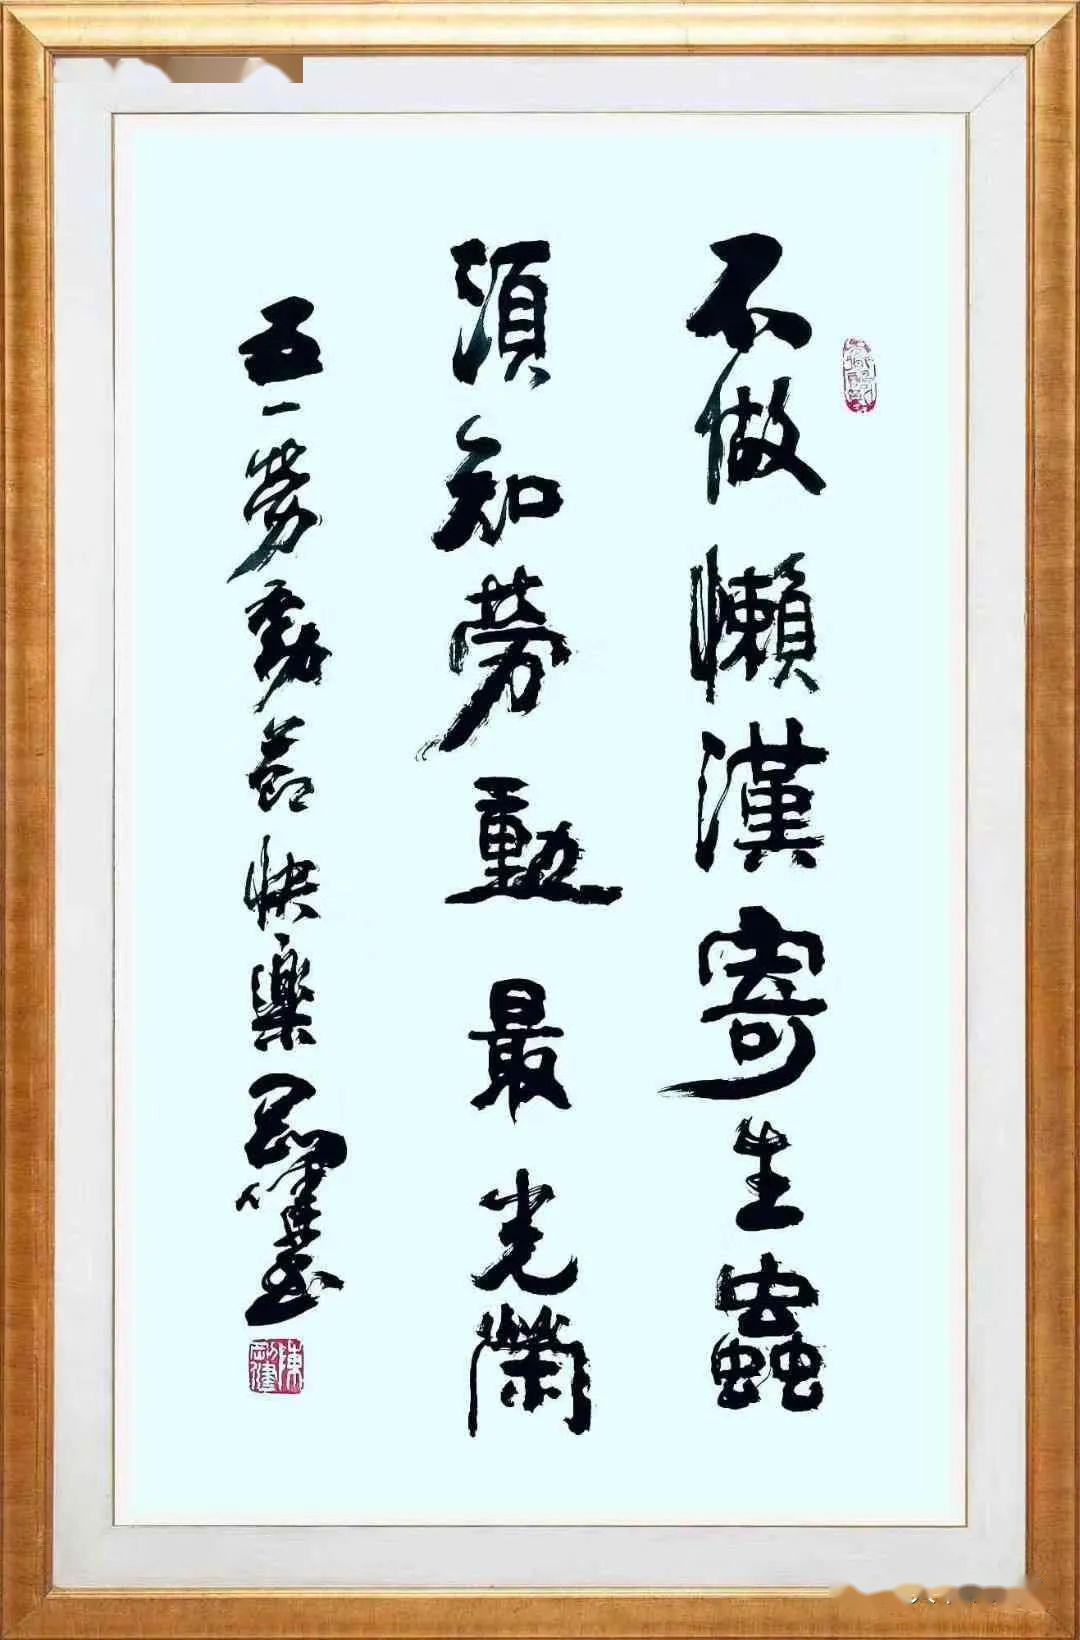 不做懶漢寄生蟲
須知勞動最光榮
五一勞動節快樂